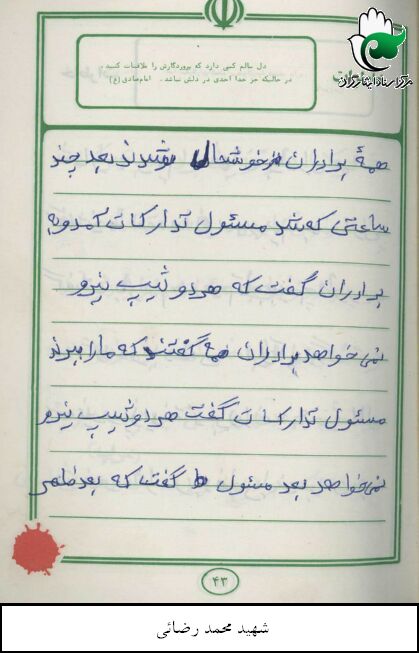 دل سالم کسی دارد که پروردگارش را ملاقات کنید
در حالیکه جز خدا احدی در دلش نباشد. امام صادق (ع)
مرکز اسناد ایثارگران
همهٔ برادران خوشحال شدند بعد چند
ساعتی که شد مسئول تدارکات آمد و به
برادران گفت که هر دو تیپ نیرو
نمی‌خواهد برادران همه گفتند که ما را ببرند
مسئول تدارکات گفت هر دو تیپ نیرو
نمی‌خواهد بعد مسئول گفت که بعد ظهر
۴۳
شهید محمد رضائی